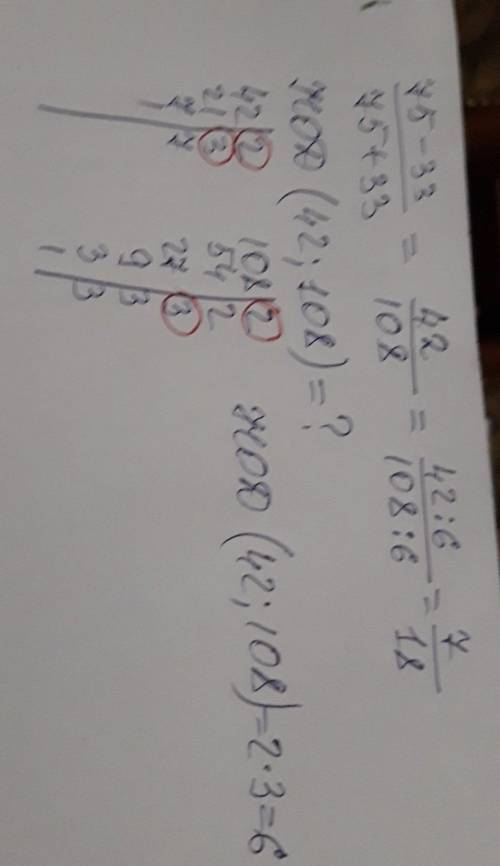 75-33/75+33 = 42/108 = 42:6/108:6 = 7/18
НОД (42; 108) = ?
42|2 108|2 НОД (42; 108)=2·3=6
21|3 54|2
7|7 27|3
1| 9|3
3|3
1|